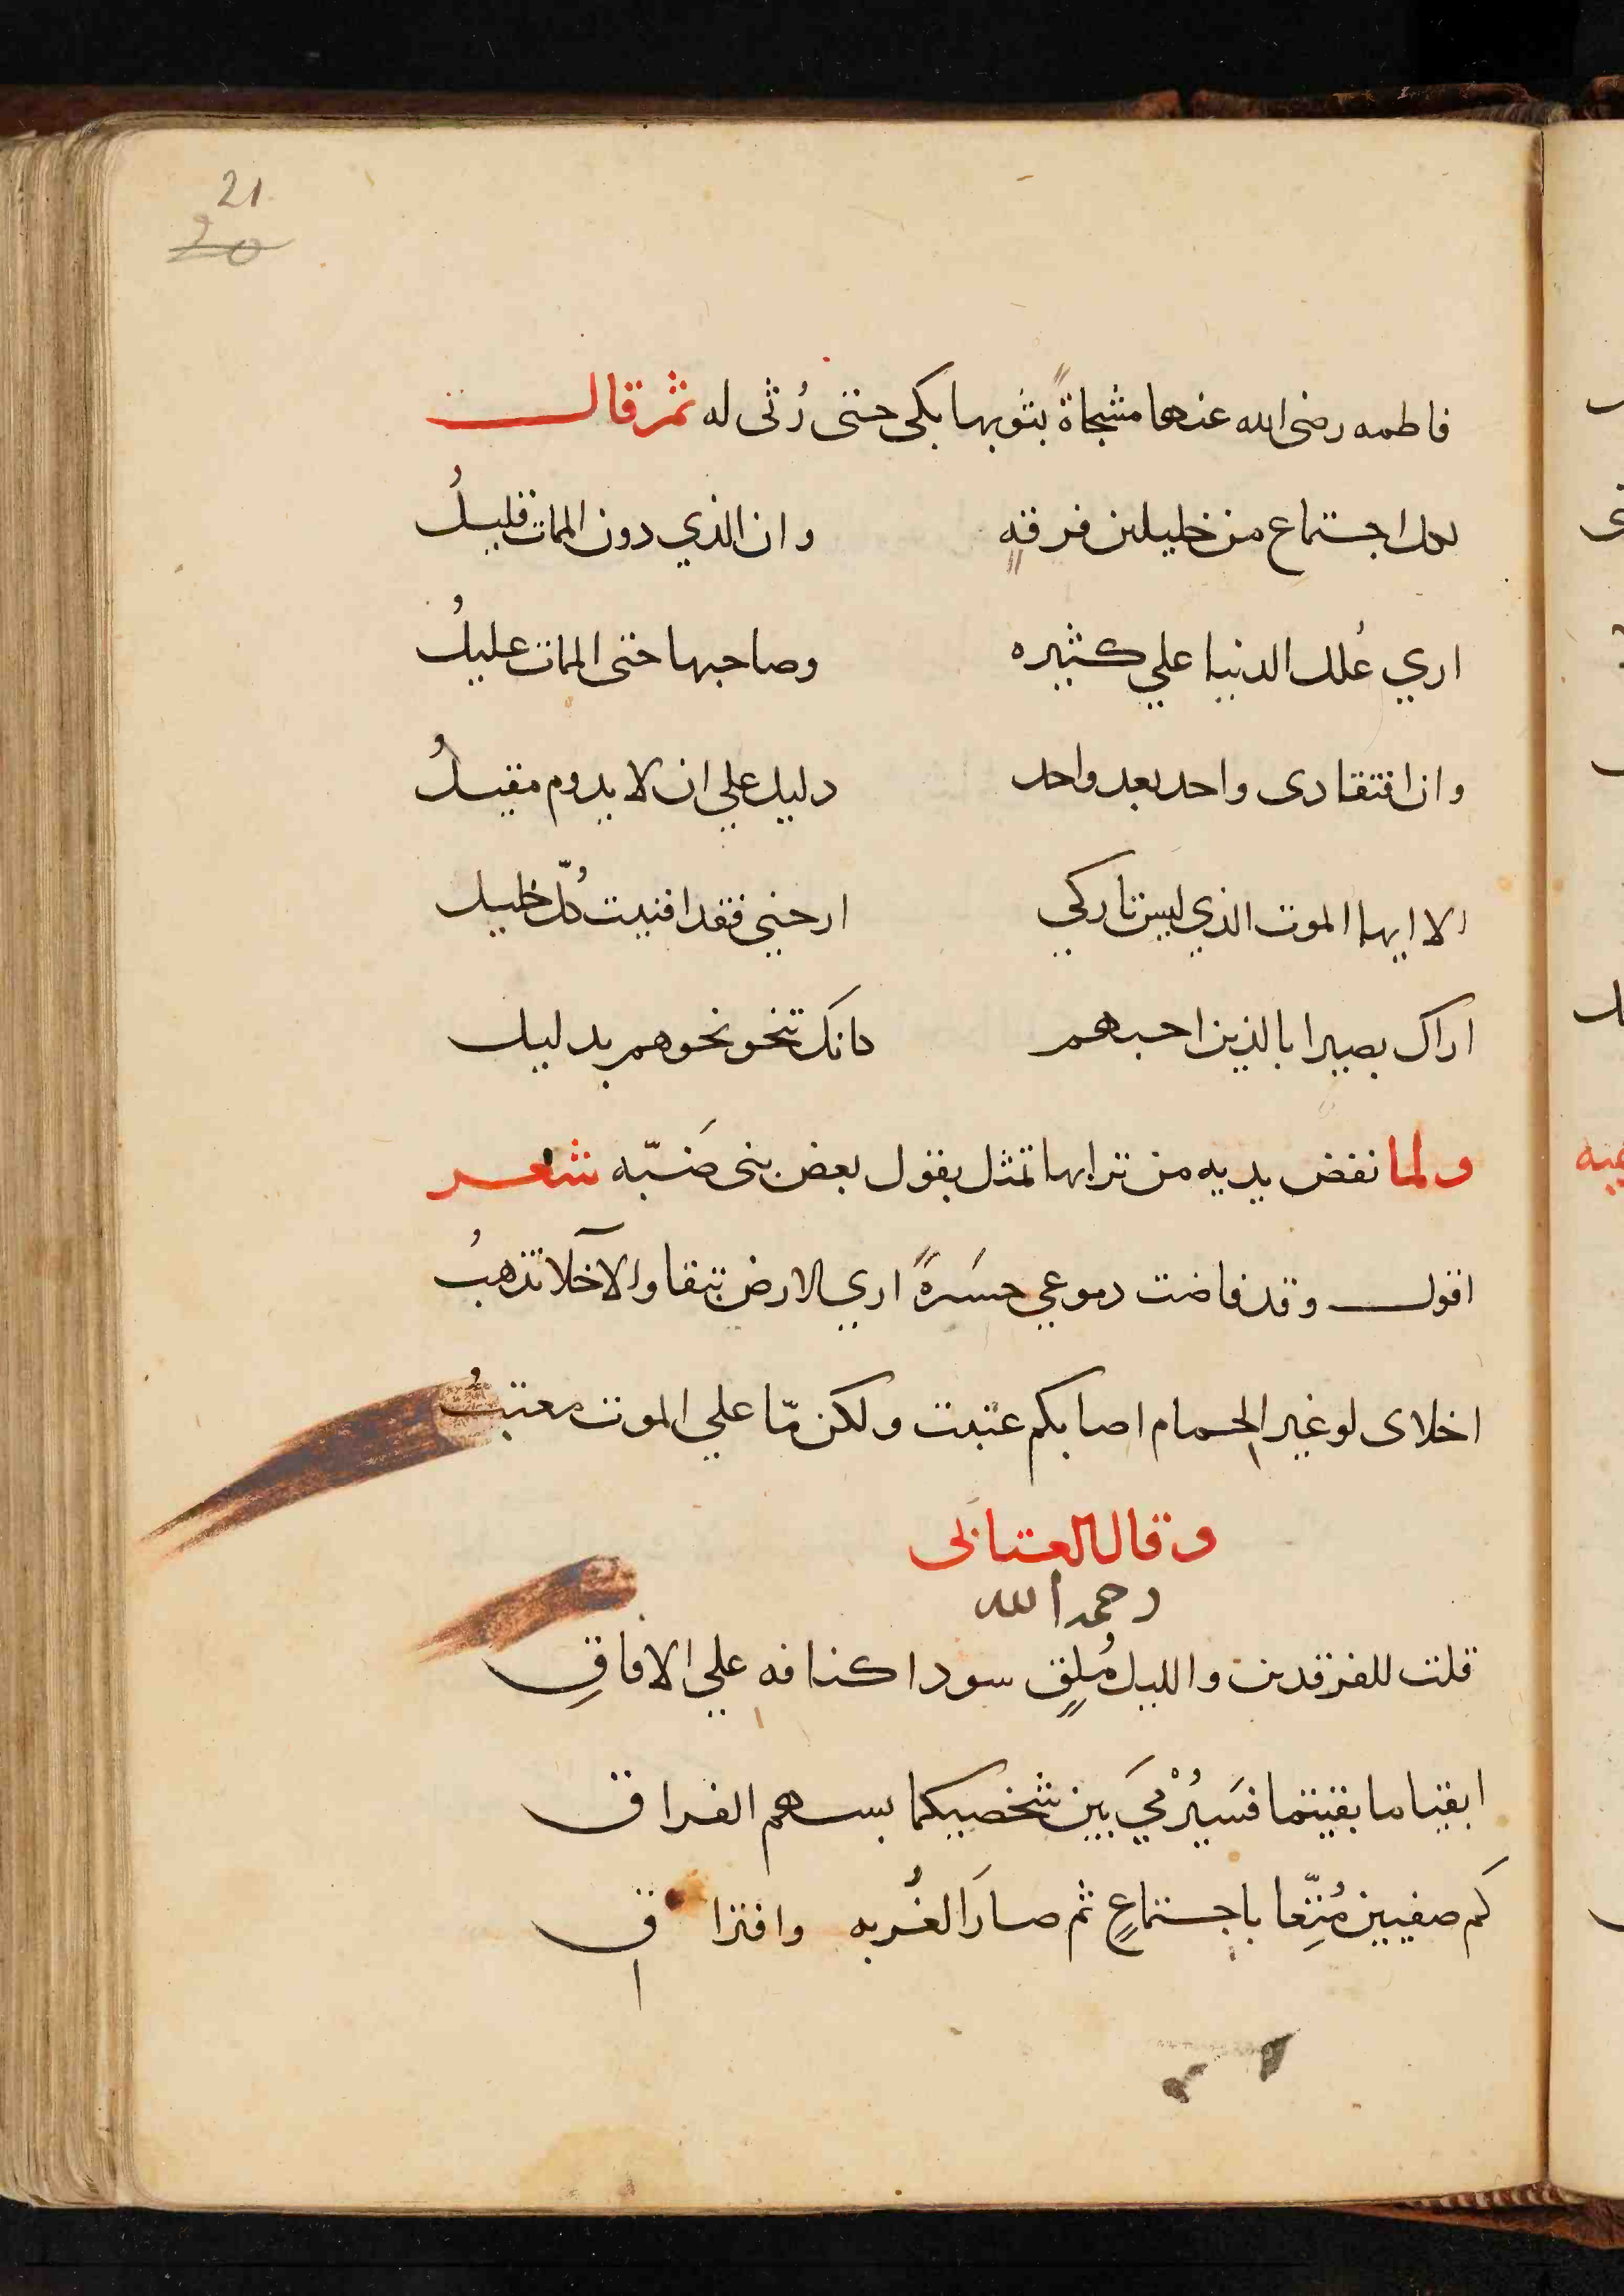 21
20
فاطمه رضى الله عنها مشجاةً بثوبها بكى حتى رُثى له ثم قالــت
لكل اجتماع من خليلين فرقةٍ وان الذي دون الممات قليلُ
اري عُلل الدنيا علي كثيره وصاحبها حتى الممات عليلُ
وان افتقادى واحد بعد واحد دليل علي ان لا يدوم مقيلُ
الا ايها الموت الذي ليس تاركي ارحني فقد افنيت كُلّ خليل
اراك بصيرا بالذين احبهم كانك تنحو نحوهم بدليل
ولما نفض يديه من ترابها تمثل بقول بعض بنى ضَبّه شعر
اقول وقد فاضت دموعي حسَرةً اري الارض تبقا والآخلا تذهبُ
اخلاى لو غير الحمام اصابكم عتبت ولكن مّا علي الموت معتبُ
وقال العتابى
رحمه الله
قلت للفرقدين والليل مُلقٍ سود اكنافه علي الافاقِ
ابقيا ما بقيتما فسَيُرْميَ بين شخصيكما بسهم الفراق
كم صفيين مُتِّعا باجتماعٍ ثم صارَا لغُربه وافتراق